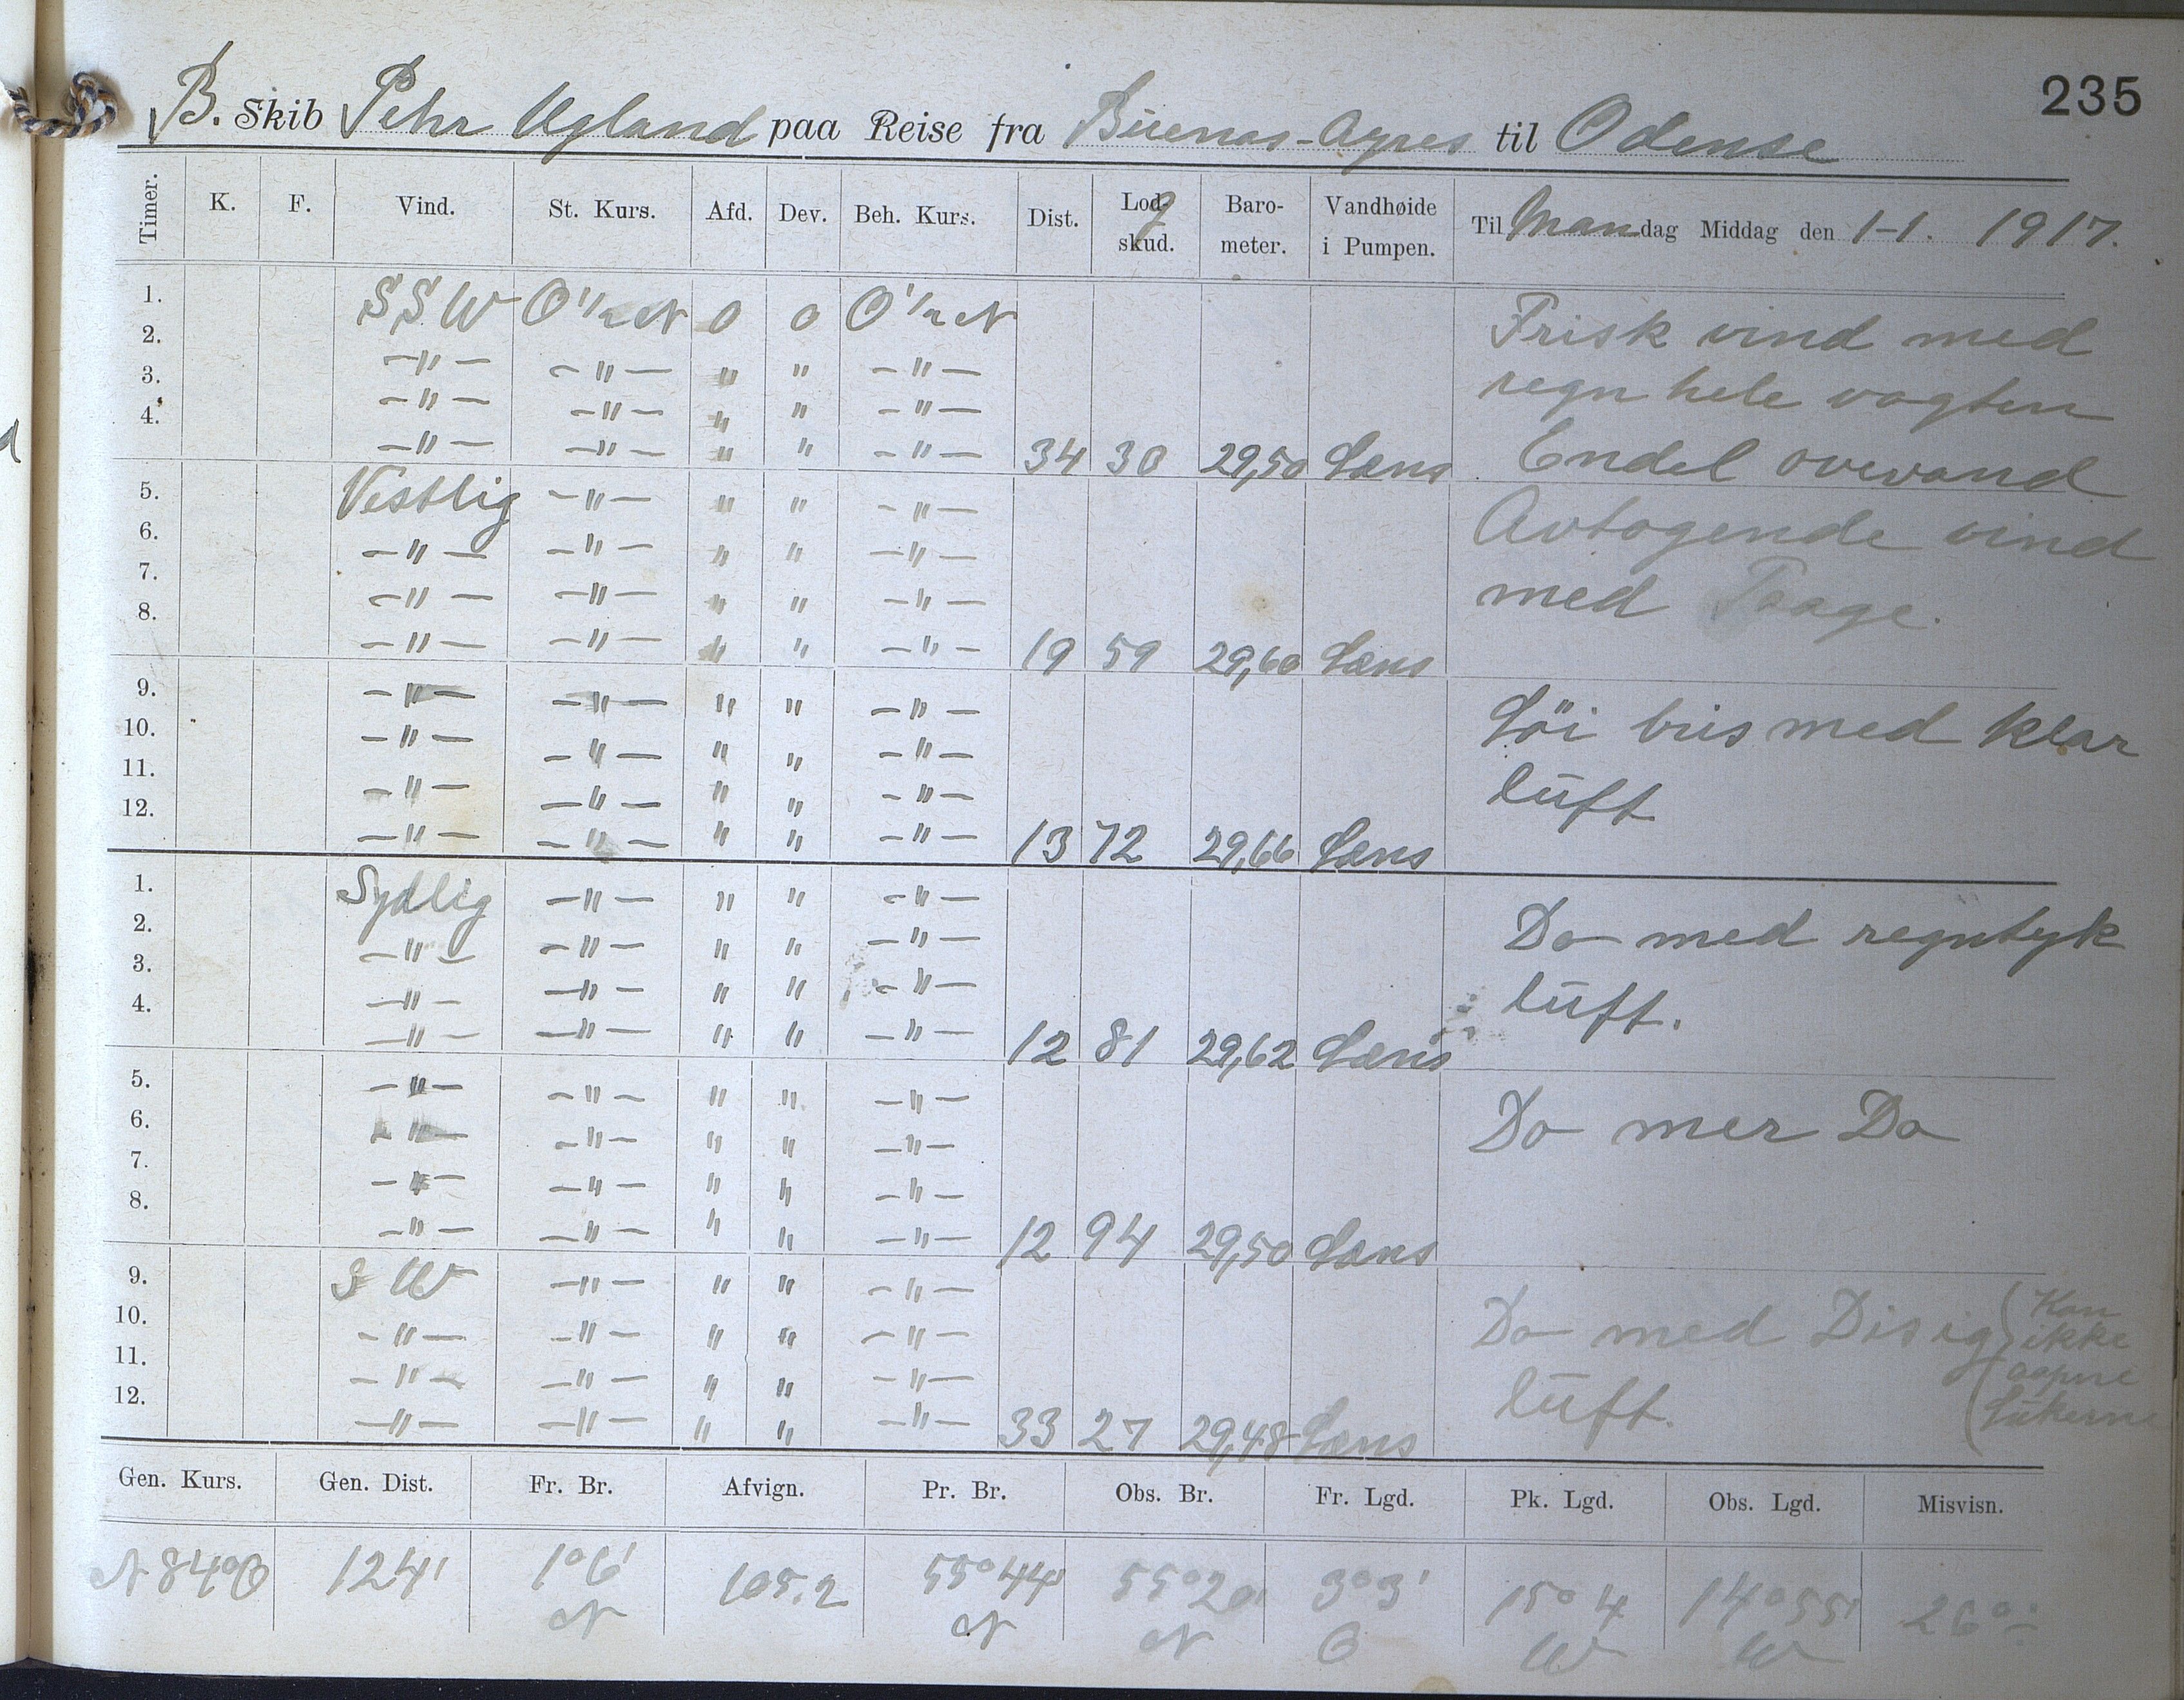 235
B. Skib Pehr Ugland paa Reise fra Buenas-Ayres til Odense
Timer. K. F. Vind. St. Kurs. Afd. Dev. Beh. Kurs. Dist. Lod-g skud. Baro-meter. Vandhøide i Pumpen. Til Mandag Middag den 1-1. 1917.
1. SSW O 1/2 N 0 0 O 1/2 N Frisk vind med
2. -"- -"- " " -"-
3. -"- -"- " " -"- regn hele vagten
4. -"- -"- " " -"- 34 30 29,50 Læns Endel overvand
5. Vestlig -"- " " -"- Avtagende vind
6. -"- -"- " " -"-
7. -"- -"- " " -"- med Taage.
8. -"- -"- " " -"- 19 59 29,60 Læns
9. -"- -"- " " -"- Löi bris med klar
10. -"- -"- " " -"-
11. -"- -"- " " -"- luft.
12. -"- -"- " " -"- 13 72 29,66 Læns
1. Sydlig -"- " " -"- Do med regntyk
2. -"- -"- " " -"-
3. -"- -"- " " -"- luft.
4. -"- -"- " " -"- 12 81 29,62 Læns
5. -"- -"- " " -"- Do mer Do
6. -"- -"- " " -"-
7. -"- -"- " " -"-
8. -"- -"- " " -"- 12 94 29,50 Læns
9. SW -"- " " -"- Do med Disig (Kan
10. -"- -"- " " -"- ikke
11. -"- -"- " " -"- luft. aapne
12. -"- -"- " " -"- 33 27 29,48 Læns Lukerne
Gen. Kurs. Gen. Dist. Fr. Br. Afvign. Pr. Br. Obs. Br. Fr. Lgd. Pk. Lgd. Obs. Lgd. Misvisn.
N 84° O 124' 1°6' 105.2 55°44' 55°20' 3°3' 15°4 14°55' 26°
N N N O W W